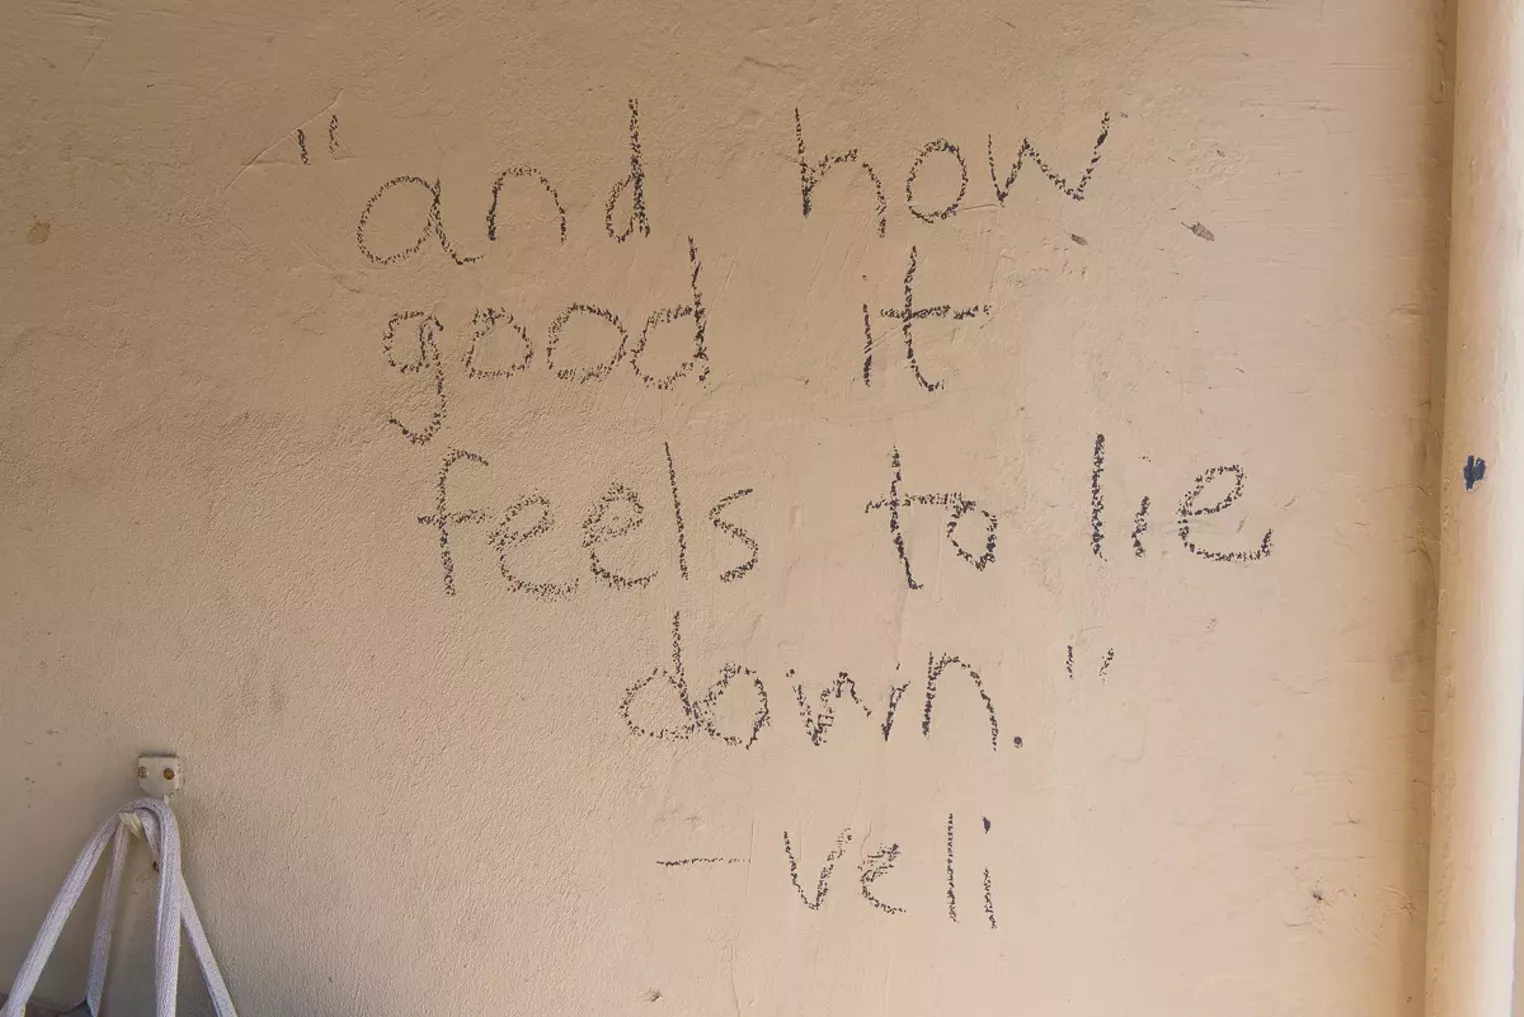 "and how
good it
feels to lie
down."
- veli